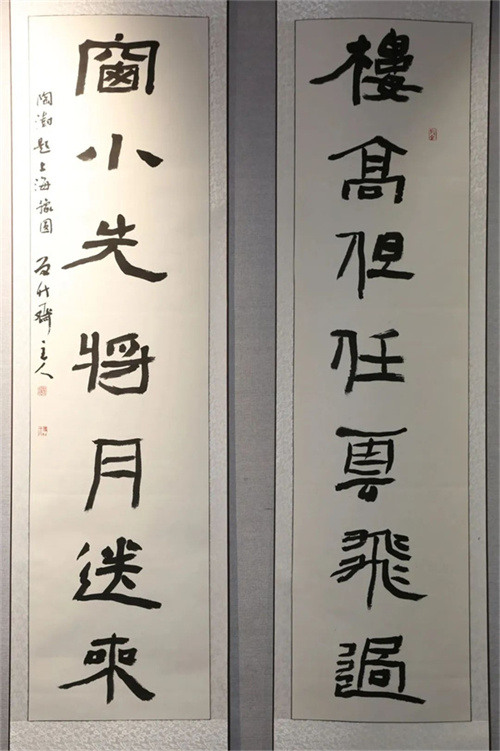 樓高但任雲飛過
窗小先將月送來
陶澍題上海豫園
石竹齋主人